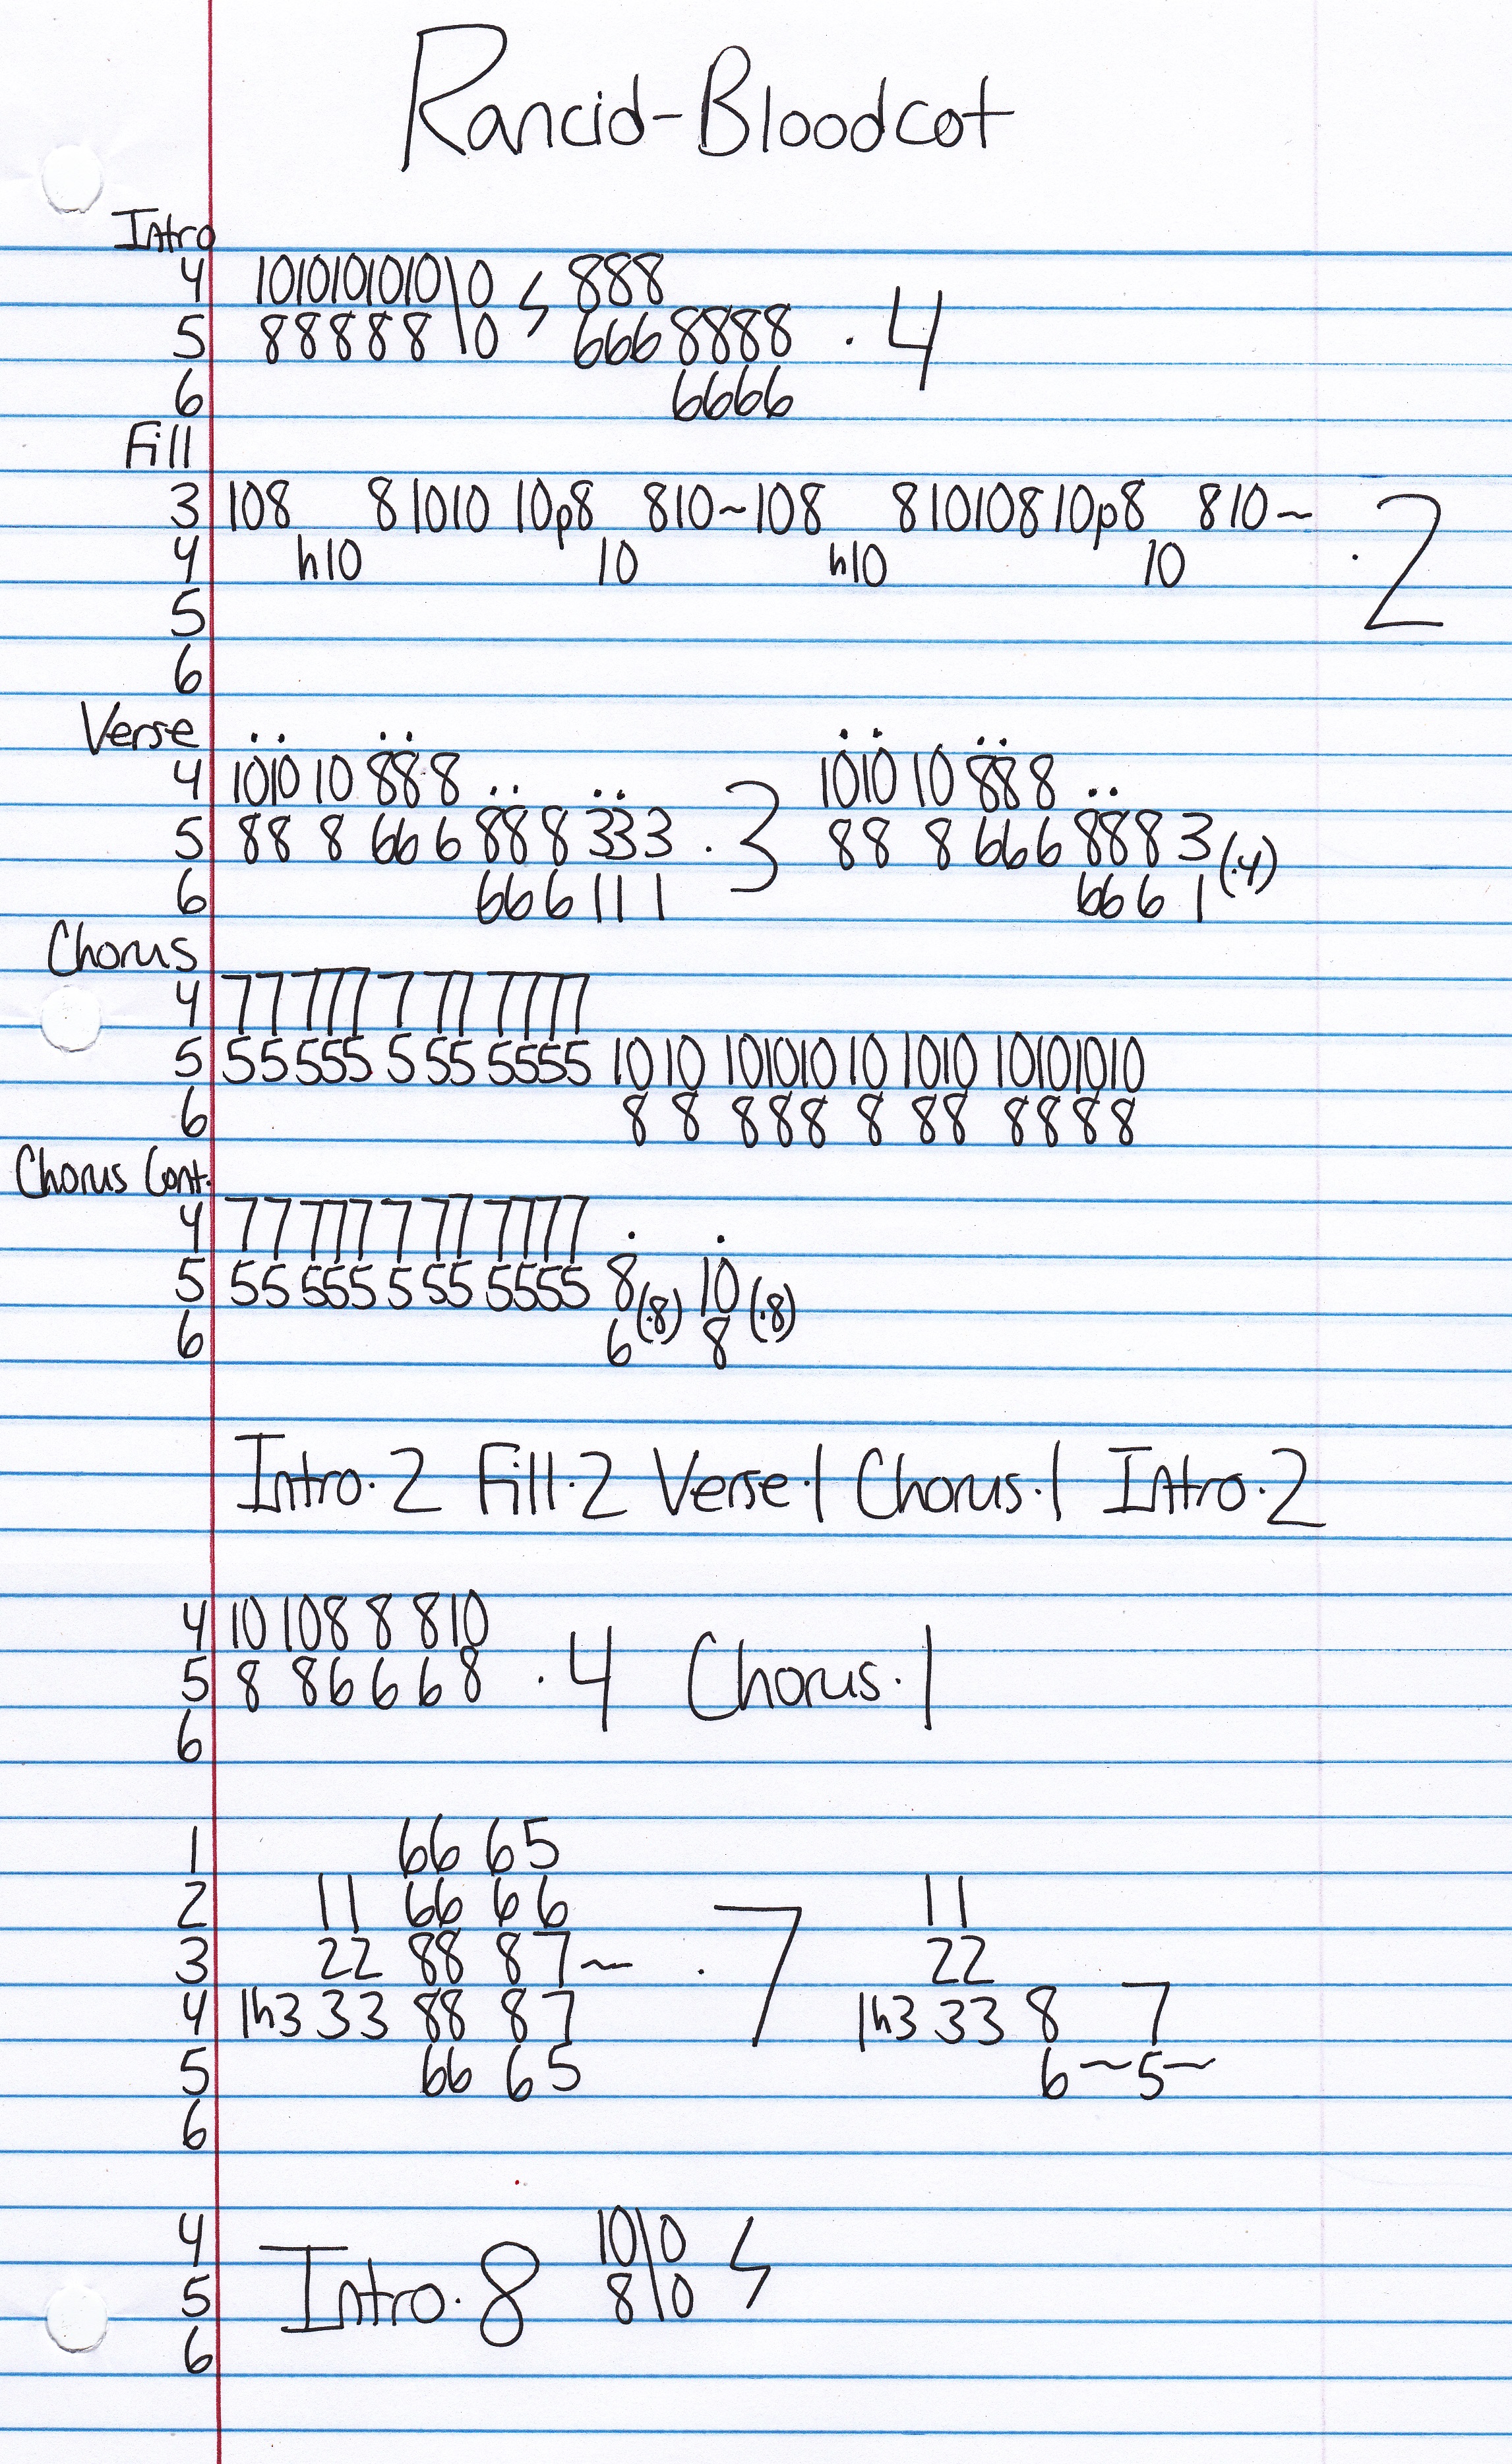 Rancid-Bloodcot
Intro
4 1010101010\0 ϟ 888
5 88888\0 6668888 · 4
6 6666
Fill
3 108 81010 10p8 810~108 81010810p8 810~ · 2
4 h10 10 h10 10
5
6
Verse
4 1010 10 888 1010 10 888
5 88 8 666 888 333 · 3 88 8 666 888 3 (·4)
6 666 111 666 1
Chorus
4 77 777 7 77 7777
5 55 555 5 55 5555 10 10 101010 10 1010 10101010
6 8 8 888 8 88 8888
Chorus Cont.
4 77 777 7 77 7777
5 55 555 5 55 5555 8 (·8) 10 (·8)
6 6 8
Intro·2 Fill·2 Verse·1 Chorus·1 Intro·2
4 10 108 8 810
5 8 86 6 6 8 · 4 Chorus·1
6
1 66 65
2 11 66 66 11
3 22 88 87~ · 7 22
4 1h3 33 88 87 1h3 33 8 7
5 66 65 6~5~
6
4 10\0 ϟ
5 Intro·8 8\0
6